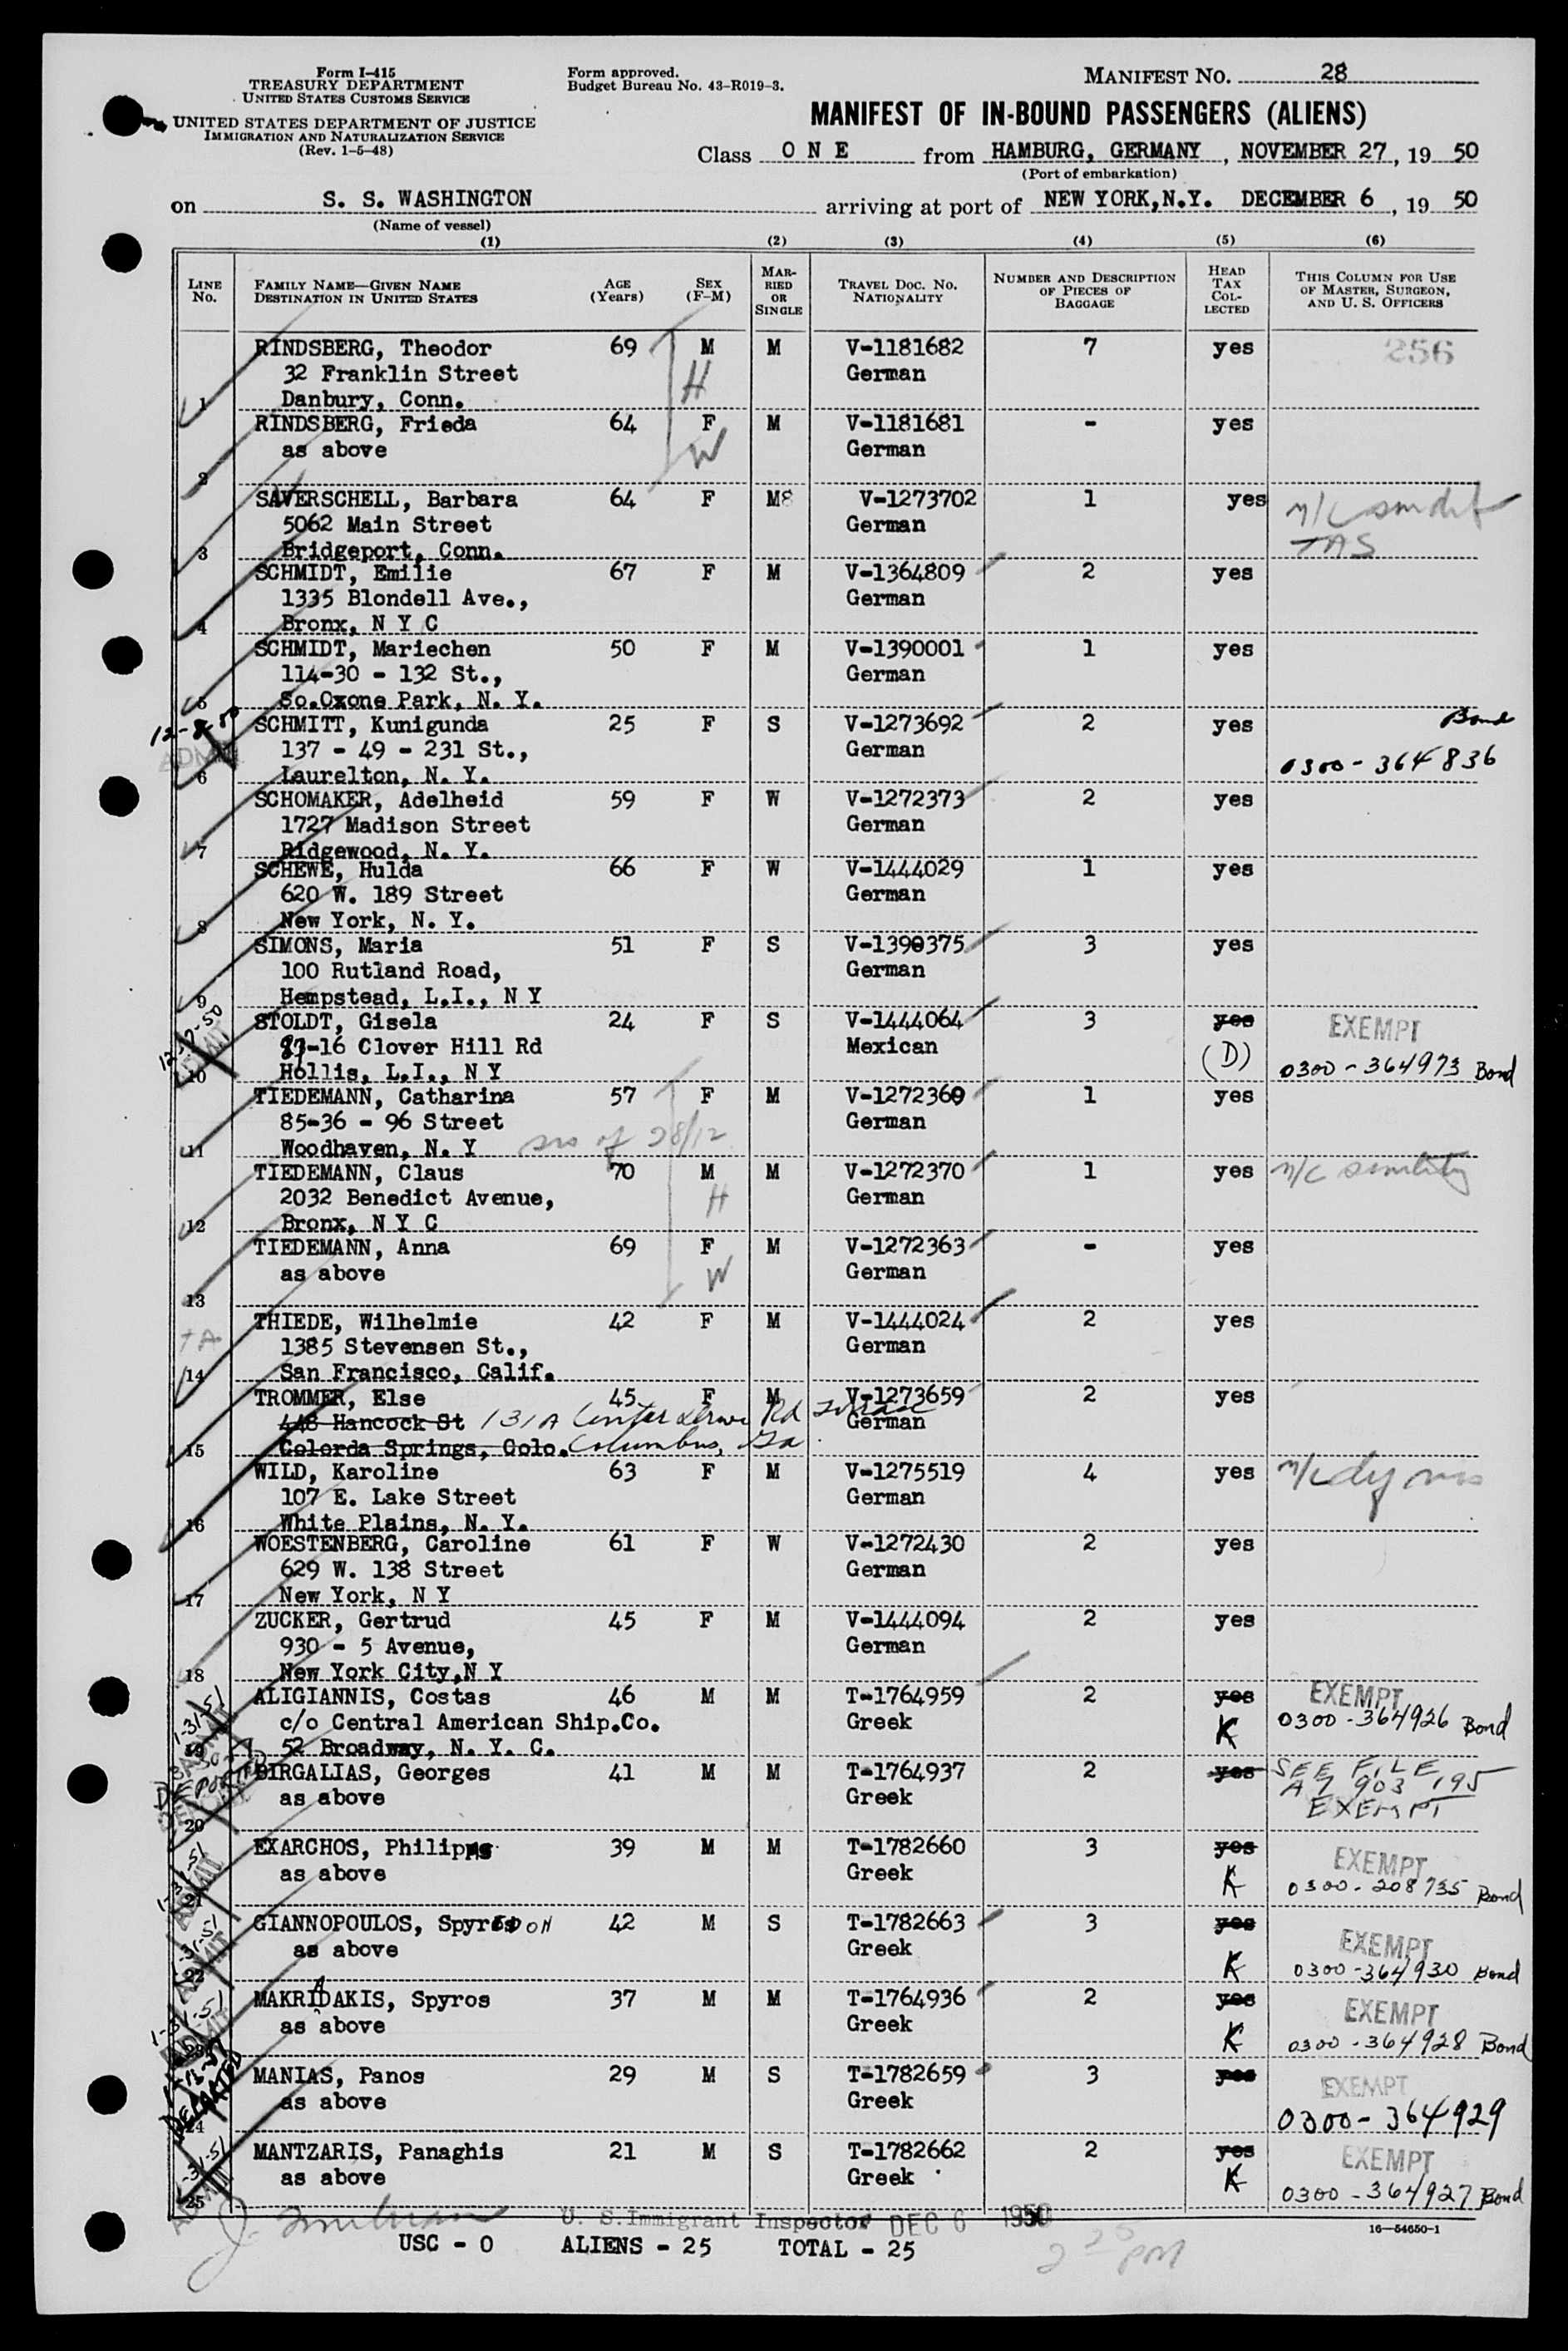 Form I-415
TREASURY DEPARTMENT
UNITED STATES CUSTOMS SERVICE
UNITED STATES DEPARTMENT OF JUSTICE
IMMIGRATION AND NATURALIZATION SERVICE
(Rev. 1-5-48)
Form approved.
Budget Bureau No. 43-R019-3.
MANIFEST NO. 28
MANIFEST OF IN-BOUND PASSENGERS (ALIENS)
Class O N E from HAMBURG, GERMANY, NOVEMBER 27, 19 50
(Port of embarkation)
on S. S. WASHINGTON arriving at port of NEW YORK, N.Y. DECEMBER 6, 19 50
(Name of vessel)
(1) (2) (3) (4) (5) (6)
LINE No. FAMILY NAME—GIVEN NAME DESTINATION IN UNITED STATES AGE (Years) SEX (F-M) MARRIED OR SINGLE TRAVEL DOC. NO. NATIONALITY NUMBER AND DESCRIPTION OF PIECES OF BAGGAGE HEAD TAX COLLECTED THIS COLUMN FOR USE OF MASTER, SURGEON, AND U. S. OFFICERS
RINDSBERG, Theodor 69 M M V-1181682 7 yes 256
32 Franklin Street H German
1 Danbury, Conn.
RINDSBERG, Frieda 64 F M V-1181681 - yes
as above W German
2
SAVERSCHELL, Barbara 64 F M8 V-1273702 1 yes
5062 Main Street German
3 Bridgeport, Conn.
SCHMIDT, Emilie 67 F M V-1364809 2 yes
1335 Blondell Ave., German
4 Bronx, N Y C
SCHMIDT, Mariechen 50 F M V-1390001 1 yes
114-30 - 132 St., German
5 So.Oxone Park, N. Y.
12-8-50 SCHMITT, Kunigunda 25 F S V-1273692 2 yes Bond
ADMIT 137 - 49 - 231 St., German 0300-364836
6 Laurelton, N. Y.
SCHOMAKER, Adelheid 59 F W V-1272373 2 yes
1727 Madison Street German
7 Ridgewood, N. Y.
SCHEWE, Hulda 66 F W V-1444029 1 yes
620 W. 189 Street German
8 New York, N. Y.
SIMONS, Maria 51 F S V-1390375 3 yes
100 Rutland Road, German
9 Hempstead, L.I., N Y
12-7-50 STOLDT, Gisela 24 F S V-1444064 3 yes EXEMPT
-16 Clover Hill Rd Mexican (D) 0300-364973 Bond
10 Hollis, L.I., N Y
TIEDEMANN, Catharina 57 F M V-1272369 1 yes
85-36 - 96 Street German
11 Woodhaven, N. Y sis of 28/12
TIEDEMANN, Claus 70 M M V-1272370 1 yes n/c senility
2032 Benedict Avenue, H German
12 Bronx, N Y C
TIEDEMANN, Anna 69 F M V-1272363 - yes
as above W German
13
THIEDE, Wilhelmie 42 F M V-1444024 2 yes
1385 Stevensen St., German
14 San Francisco, Calif.
TROMMER, Else 45 F M V-1273659 2 yes
448 Hancock St 131A Rd German
15 Colorda Springs, Colo. Columbus, Ga.
WILD, Karoline 63 F M V-1275519 4 yes
107 E. Lake Street German
16 White Plains, N. Y.
WOESTENBERG, Caroline 61 F W V-1272430 2 yes
629 W. 138 Street German
17 New York, N Y
ZUCKER, Gertrud 45 F M V-1444094 2 yes
930 - 5 Avenue, German
18 New York City,N Y
1-31-51 ALIGIANNIS, Costas 46 M M T-1764959 2 yes EXEMPT
c/o Central American Ship.Co. Greek K 0300-364926 Bond
19 52 Broadway, N. Y. C.
DEPORTED BIRGALIAS, Georges 41 M M T-1764937 2 yes SEE FILE
as above Greek A7 903 195
20 EXEMPT
1-31-51 EXARCHOS, Philippos 39 M M T-1782660 3 yes EXEMPT
as above Greek K 0300-208735 Bond
21
1-31-51 GIANNOPOULOS, SpyrEDON 42 M S T-1782663 3 yes EXEMPT
as above Greek K 0300-364930 Bond
22
1-31-51 MAKRIDAKIS, Spyros 37 M M T-1764936 2 yes EXEMPT
as above Greek K 0300-364928 Bond
23
DEPARTED MANIAS, Panos 29 M S T-1782659 3 yes EXEMPT
as above Greek 0300-364929
24
1-31-51 MANTZARIS, Panaghis 21 M S T-1782662 2 yes EXEMPT
as above Greek K 0300-364927 Bond
25
U. S. Immigrant Inspector DEC 6 1950
16—54650-1
USC - 0 ALIENS - 25 TOTAL - 25
2 25 PM